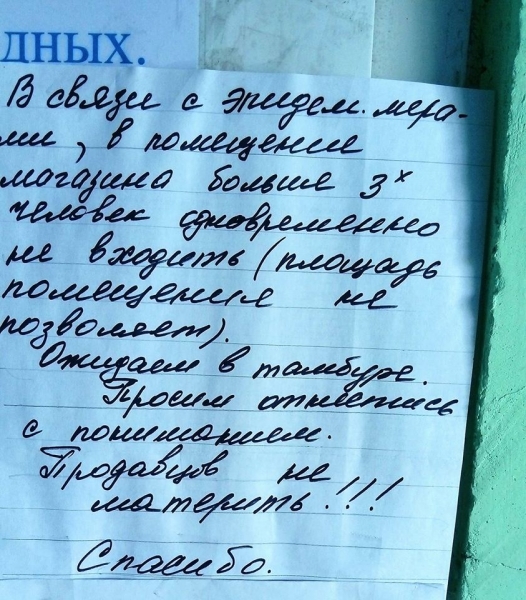 дных.
В связи с эпидем. мера-
ми, в помещение
магазина больше 3х
человек одновременно
не входить (площадь
помещения не
позволяет).
Ожидаем в тамбуре.
Просим отнестись
с пониманием.
Продавцов не
материть!!!
Спасибо.